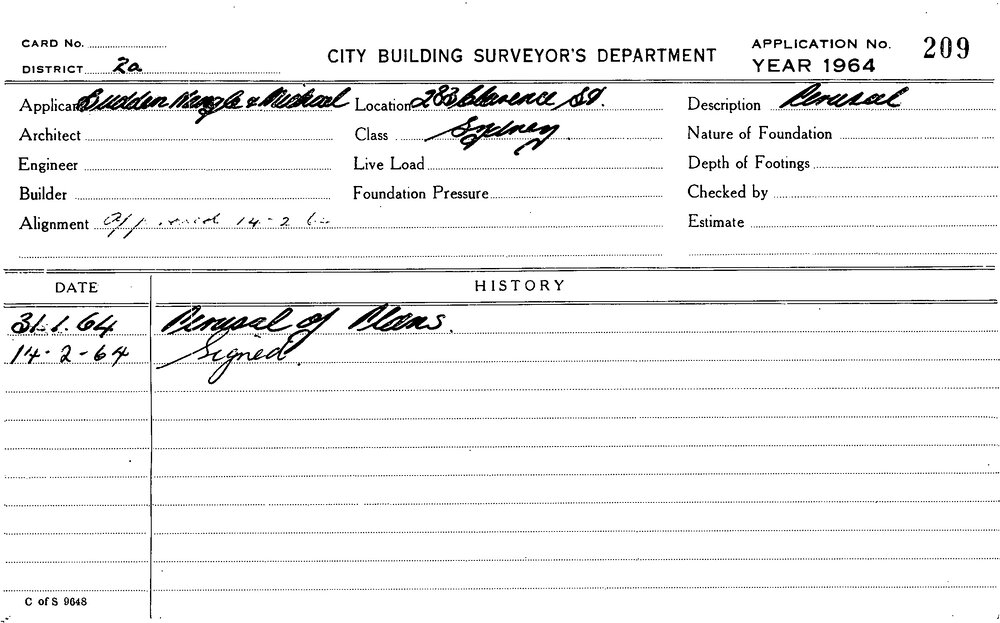 CARD No.
DISTRICT 2a
CITY BUILDING SURVEYOR'S DEPARTMENT
APPLICATION No. 209
YEAR 1964
Applicant Budden Nangle & Michael
Location 283 Clarence St.
Sydney
Description Perusal
Architect
Class
Nature of Foundation
Engineer
Live Load
Depth of Footings
Builder
Foundation Pressure
Checked by
Alignment Approved 14-2
Estimate
DATE HISTORY
31.1.64 Perusal of Plans.
14-2-64 Signed.
C of S 9648